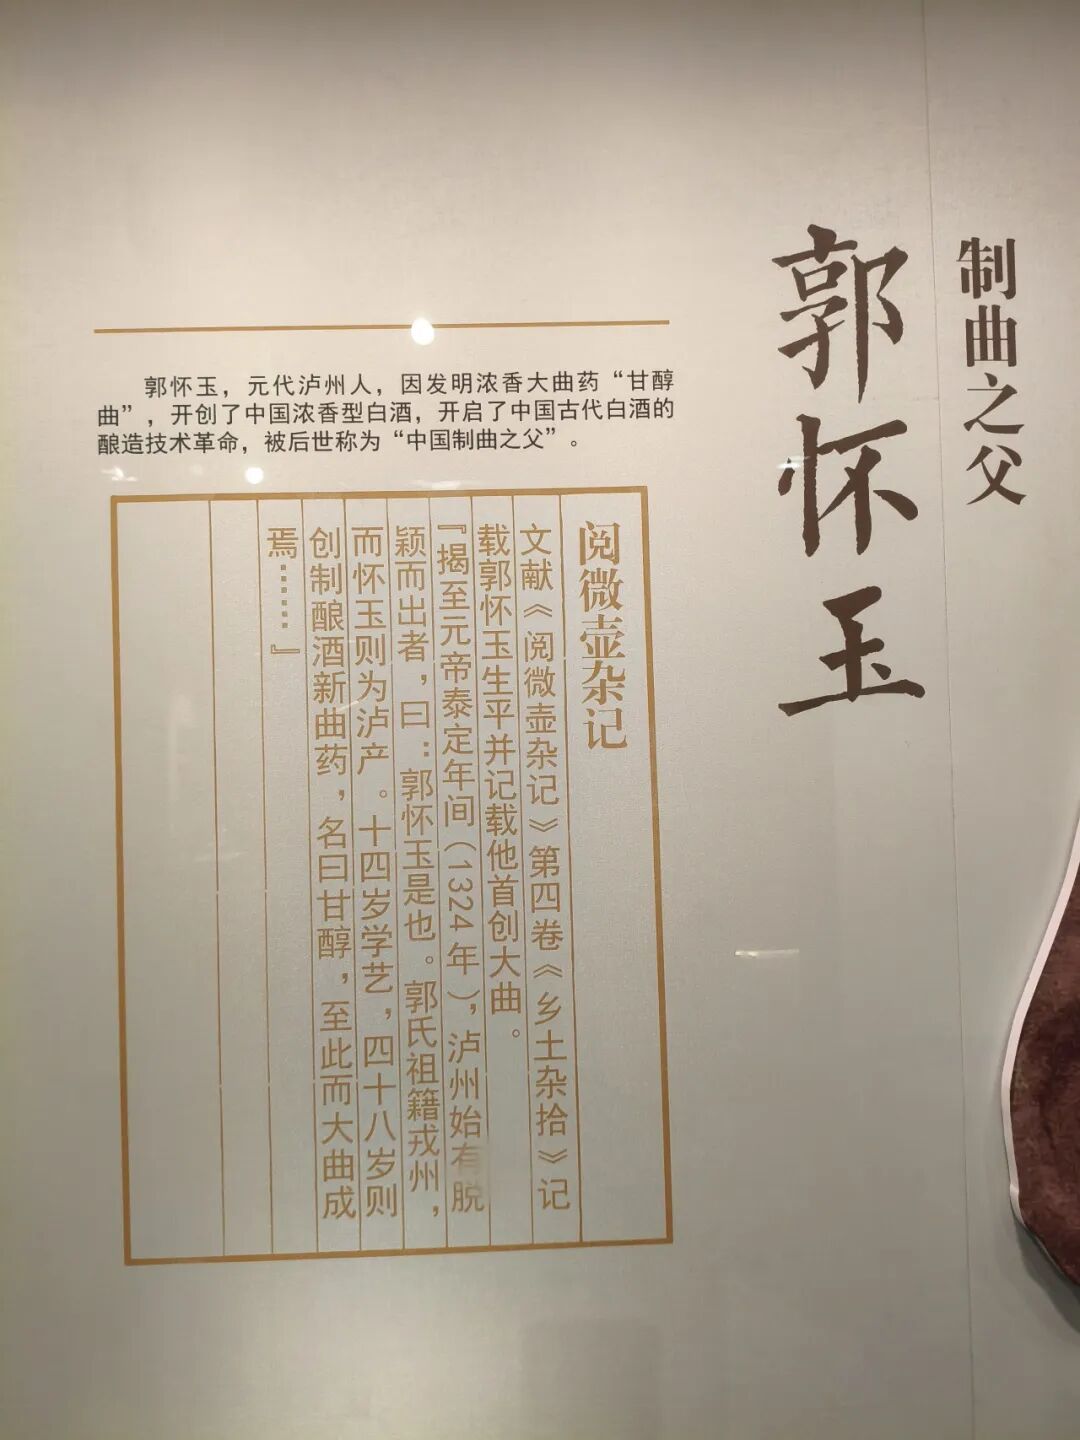 制曲之父
郭怀玉
郭怀玉，元代泸州人，因发明浓香大曲药“甘醇
曲”，开创了中国浓香型白酒，开启了中国古代白酒的
酿造技术革命，被后世称为“中国制曲之父”。
阅微壶杂记
文献《阅微壶杂记》第四卷《乡土杂拾》记
载郭怀玉生平并记载他首创大曲。
『揭至元帝泰定年间（1324年），泸州始有脱
颖而出者，曰：郭怀玉是也。郭氏祖籍戎州，
而怀玉则为泸产。十四岁学艺，四十八岁则
创制酿酒新曲药，名曰甘醇，至此而大曲成
焉……』